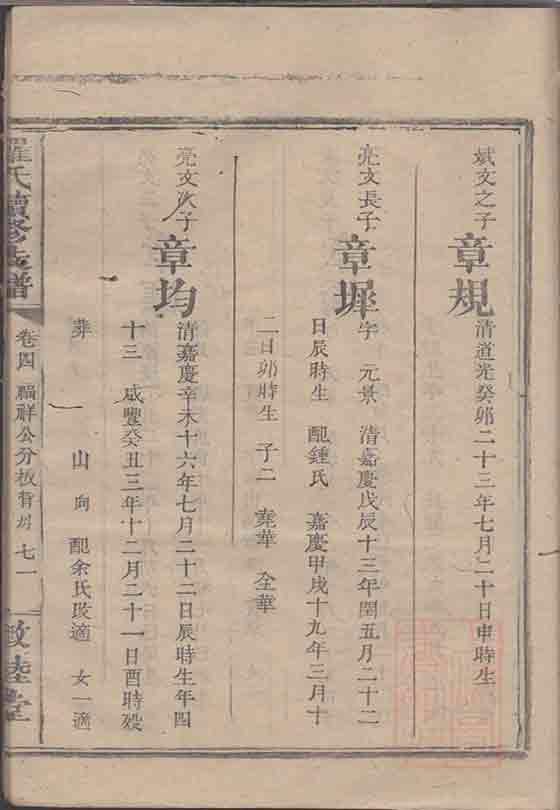 斌文之子
章規
清道光癸卯二十三年七月二十日申時生
亮文長子
章墀
字 元景 清嘉慶戊辰十三年閏五月二十二
日辰時生 配鍾氏 嘉慶甲戌十九年三月十
二日卯時生 子二 堯華 全華
亮文次子
章均
清嘉慶辛未十六年七月二十二日辰時生年四
十三 咸豐癸丑三年十二月二十一日酉時歿
葬 山 向 配余氏改適 女一適
羅氏續修族譜
卷四 福祥公分板背圳 七一
敦睦堂